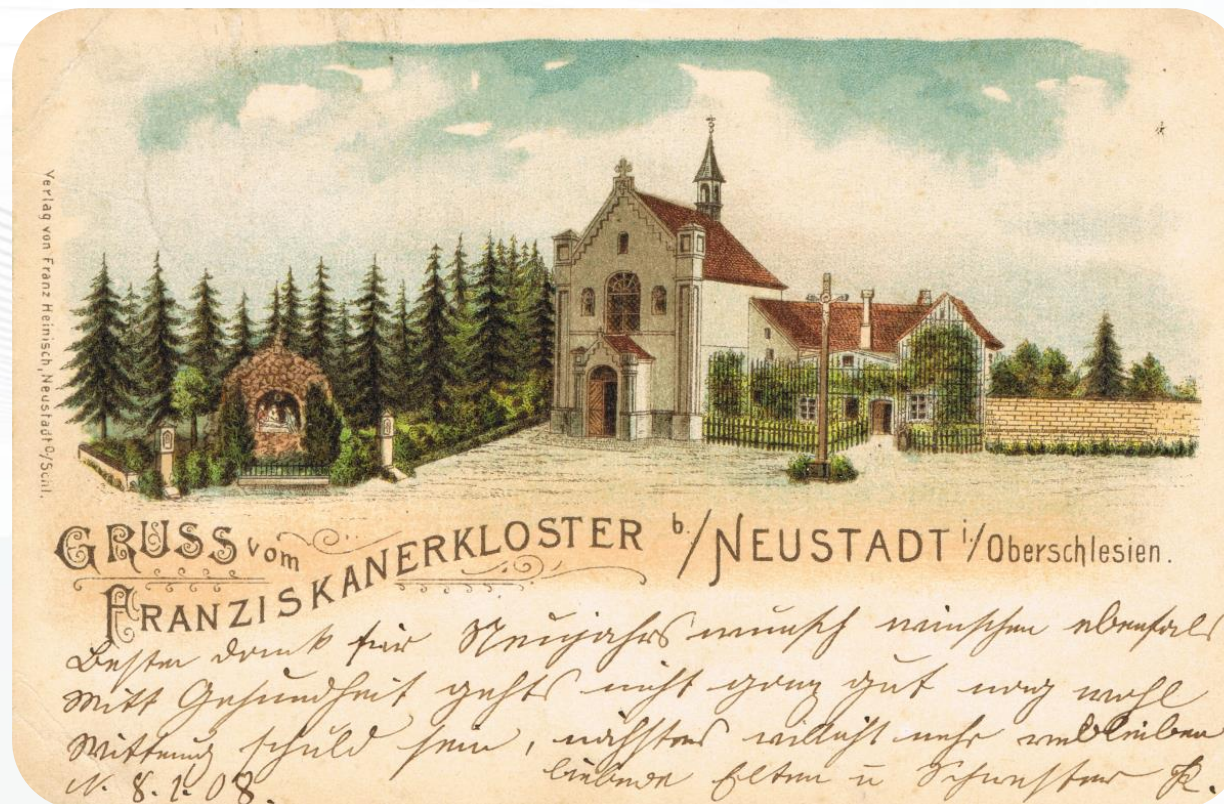 Verlag von Franz Heinisch, Neustadt O/Schl.
GRUSS vom
FRANZISKANERKLOSTER b./NEUSTADT i./Oberschlesien.
Besten Dank für Neujahrswunsch wünschen ebenfals
Mitt Gesundheit gehts nicht ganz gut mag wohl
Witterung schuld sein, nähstes mehr
N. 8. 1. 08. liebende Eltern u Schwester R.